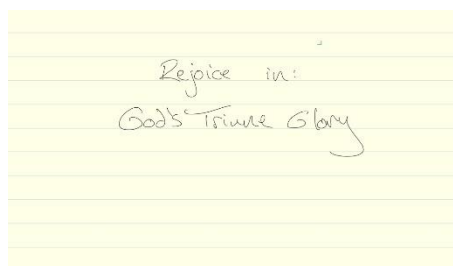 Rejoice in:
God's Triune Glory